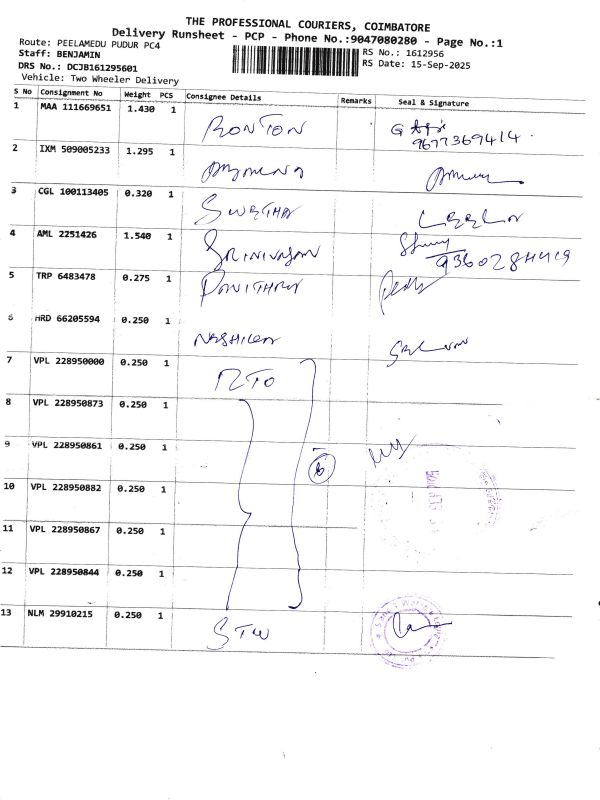 THE PROFESSIONAL COURIERS, COIMBATORE
Delivery Runsheet - PCP - Phone No.:9047080280 - Page No.:1
Route: PEELAMEDU PUDUR PC4
Staff: BENJAMIN
DRS No.: DCJB161295601
Vehicle: Two Wheeler Delivery
RS No.: 1612956
RS Date: 15-Sep-2025
S No Consignment No Weight PCS Consignee Details Remarks Seal & Signature
1 MAA 111669651 1.430 1 BONTON
9677369414.
2 IXM 509005233 1.295 1
3 CGL 100113405 0.320 1 SWETHA LEELA
4 AML 2251426 1.540 1 SRINIVASAN
9360284419
5 TRP 6483478 0.275 1 PAVITHRA
6 HRD 66205594 0.250 1
7 VPL 228950000 0.250 1 RTO
8 VPL 228950873 0.250 1
9 VPL 228950861 0.250 1
6
10 VPL 228950882 0.250 1
11 VPL 228950867 0.250 1
12 VPL 228950844 0.250 1
13 NLM 29910215 0.250 1 STW